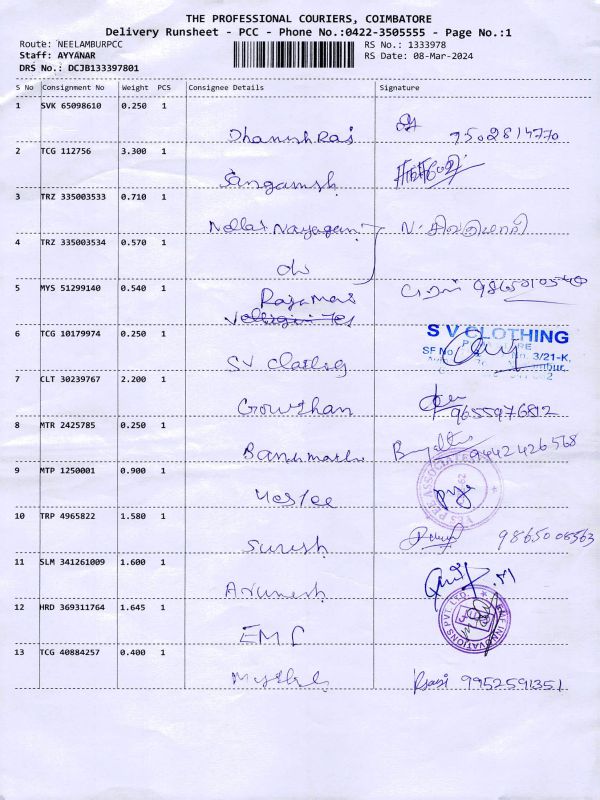 THE PROFESSIONAL COURIERS, COIMBATORE
Delivery Runsheet - PCC - Phone No.:0422-3505555 - Page No.:1
Route: NEELAMBURPCC RS No.: 1333978
Staff: AYYANAR RS Date: 08-Mar-2024
DRS No.: DCJB133397801
S No Consignment No Weight PCS Consignee Details Signature
1 SVK 65098610 0.250 1
DhanushRaj 7502814770
2 TCG 112756 3.300 1
Sangamesh
3 TRZ 335003533 0.710 1
Nellai Nayagam
4 TRZ 335003534 0.570 1
5 MYS 51299140 0.540 1
Rajamani
6 TCG 10179974 0.250 1
S V CLOTHING
SF No. 3/21-K,
SV Clothing
7 CLT 30239767 2.200 1
Gowthan 9655976812
8 MTR 2425785 0.250 1
Banumathi 9442426568
9 MTP 1250001 0.900 1
10 TRP 4965822 1.580 1
Suresh
11 SLM 341261009 1.600 1
12 HRD 369311764 1.645 1
13 TCG 40884257 0.400 1
9952591351